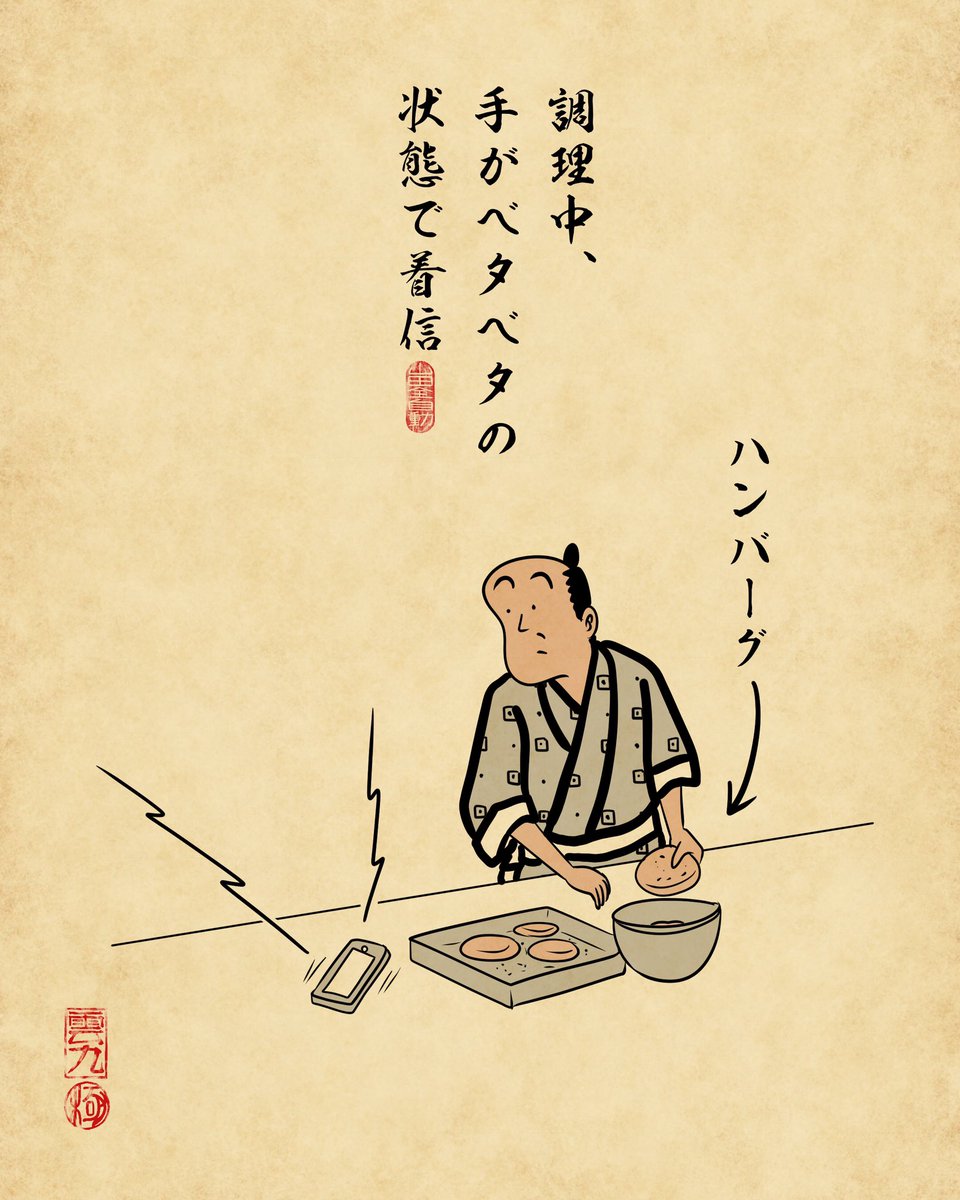 調理中、
手がベタベタの
状態で着信
ハンバーグ